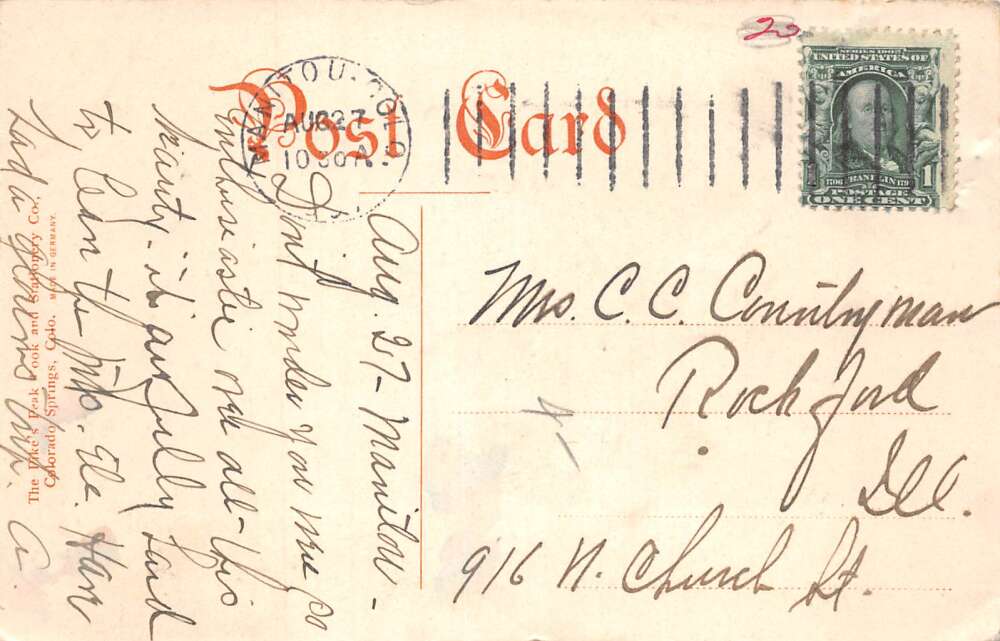 Post Card
MANITOU. COLO.
AUG 27
10 30 A
SERIES 1902
UNITED STATES OF
AMERICA
1706 FRANKLIN 1790
POSTAGE
1 ONE CENT 1
20
Mrs. C. C. Countryman
Rockford
Ill.
916 N. Church St.
Aug. 27 - Manitou -
Don't wonder you were so
enthusiastic over all this
beauty - it's awfully hard
to leave the Mts. etc. Have
had a glorious trip.
A.
The Pike's Peak Book and Stationery Co.,
Colorado Springs, Colo. MADE IN GERMANY.